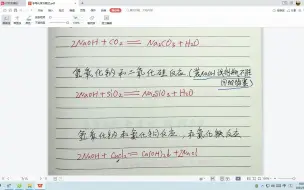 2NaOH + CO₂ == Na₂CO₃ + H₂O
氢氧化钠和二氧化硅反应 (装NaOH试剂瓶不能
用的结果)
2NaOH + SiO₂ == Na₂SiO₃ + H₂O
氢氧化钠和氯化铜反应，和氯化铁反应
2NaOH + CuCl₂ == Cu(OH)₂↓ + 2NaCl